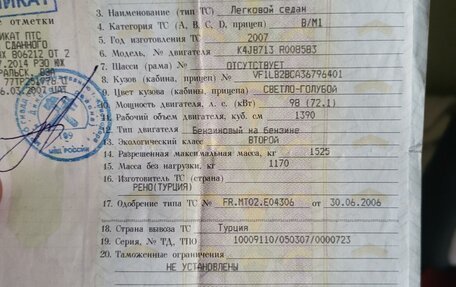 ИКАТ
ИКАТ ПТС
СДАННОГО
ЫХ 806212 ОТ 2
.2014 РЭО ЮХ
РАЛЬСК, ВЗА
6.03.2007
МВД РОССИИ
3. Наименование (тип ТС) Легковой седан
4. Категория ТС (А, В, С, D, прицеп) B/M1
5. Год изготовления ТС 2007
6. Модель, № двигателя K4JB713 R008583
7. Шасси (рама) № ОТСУТСТВУЕТ
8. Кузов (кабина, прицеп) № VF1LB2BCA36796401
9. Цвет кузова (кабины, прицепа) СВЕТЛО-ГОЛУБОЙ
10. Мощность двигателя, л. с. (кВт) 98 (72.1)
11. Рабочий объем двигателя, куб. см 1390
12. Тип двигателя Бензиновый на бензине
13. Экологический класс ВТОРОЙ
14. Разрешенная максимальная масса, кг 1525
15. Масса без нагрузки, кг 1170
16. Изготовитель ТС (страна)
РЕНО(ТУРЦИЯ)
17. Одобрение типа ТС № FR.MT02.E04306 от 30.06.2006
18. Страна вывоза ТС Турция
19. Серия, № ТД, ТПО 10009110/050307/0000723
20. Таможенные ограничения
НЕ УСТАНОВЛЕНЫ